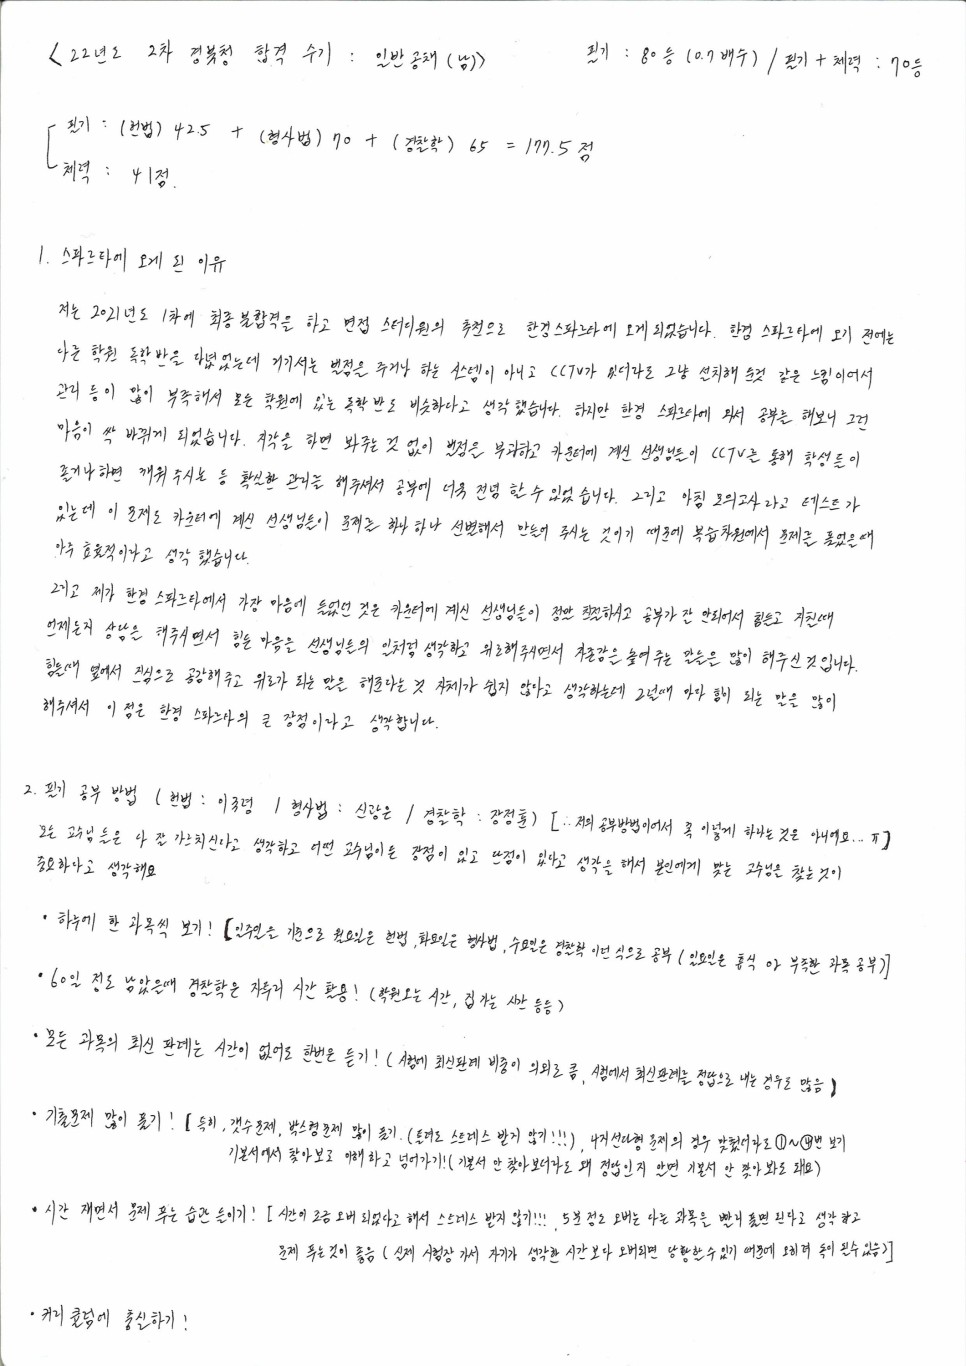 <22년도 2차 경북청 합격 수기 : 일반공채(남)>
필기 : 80등 (0.7배수) / 필기 + 체력 : 70등
필기 : (헌법) 42.5 + (형사법) 70 + (경찰학) 65 = 177.5점
체력 : 41점.
1. 스파르타에 오게 된 이유
저는 2021년도 1차에 최종불합격을 하고 면접 스터디원의 추천으로 한경스파르타에 오게 되었습니다. 한경 스파르타에 오기 전에는
다른 학원 독학반을 다녔었는데 거기서는 벌점을 주거나 하는 시스템이 아니고 CCTV가 있더라도 그냥 설치해 놓은것 같은 느낌이어서
관리 등이 많이 부족해서 모든 학원에 있는 독학반도 비슷하다고 생각했습니다. 하지만 한경 스파르타에 와서 공부를 해보니 그런
마음이 싹 바뀌게 되었습니다. 지각을 하면 봐주는 것 없이 벌점을 부과하고 카운터에 계신 선생님들이 CCTV를 통해 학생들이
졸거나하면 깨워주시는 등 확실한 관리를 해주셔서 공부에 더욱 전념 할 수 있었습니다. 그리고 아침 모의고사라고 테스트가
있는데 이 문제도 카운터에 계신 선생님들이 문제를 하나 하나 선별해서 만들어 주시는 것이기 때문에 복습차원에서 문제를 풀었을때
아주 효율적이라고 생각 했습니다.
그리고 제가 한경 스파르타에서 가장 마음에 들었던 것은 카운터에 계신 선생님들이 정말 친절하시고 공부가 잘 안되어서 힘들고 지칠때
언제든지 상담을 해주시면서 힘든 마음을 선생님들의 일처럼 생각하고 위로해주시면서 자존감을 높여주는 말들을 많이 해주신 것 입니다.
힘들때 옆에서 진심으로 공감해주고 위로가 되는 말을 해준다는 것 자체가 쉽지 않다고 생각하는데 그럴때 마다 힘이 되는 말을 많이
해주셔서 이 점은 한경 스파르타의 큰 장점이라고 생각합니다.
2. 필기 공부 방법 (헌법 : 이국령 / 형사법 : 신광은 / 경찰학 : 장정훈) [∴ 저의 공부방법이어서 꼭 이렇게 하라는 것은 아니에요... ㅠ]
모든 교수님들은 다 잘 가르치신다고 생각하고 어떤 교수님이든 장점이 있고 단점이 있다고 생각을 해서 본인에게 맞는 교수님을 찾는것이
중요하다고 생각해요
• 하루에 한 과목씩 보기! [일주일을 기준으로 월요일은 헌법, 화요일은 형사법, 수요일은 경찰학 이런 식으로 공부 (일요일은 휴식 or 부족한 과목 공부)]
• 60일 정도 남았을때 경찰학은 자투리 시간 활용! (학원오는 시간, 집 가는 시간 등등)
• 모든 과목의 최신 판례는 시간이 없어도 한번은 듣기! (시험에 최신판례 비중이 의외로 큼, 시험에서 최신판례를 정답으로 내는 경우도 많음)
• 기출문제 많이 풀기! [특히, 갯수문제, 박스형문제 많이 풀기. (틀려도 스트레스 받지 않기!!!), 4지선다형 문제의 경우 맞췄더라도 ①~④번 보기
기본서에서 찾아보고 이해하고 넘어가기!(기본서 안 찾아보더라도 왜 정답인지 알면 기본서 안 찾아 봐도 돼요)
• 시간 재면서 문제 푸는 습관 들이기! [시간이 조금 오버 되었다고 해서 스트레스 받지 않기!!!, 5분정도 오버는 다른 과목을 빨리 풀면 된다고 생각하고
문제 푸는것이 좋음 (실제 시험장 가서 자기가 생각한 시간보다 오버되면 당황할수 있기 때문에 오히려 독이 될수있음)]
• 커리큘럼에 충실하기!